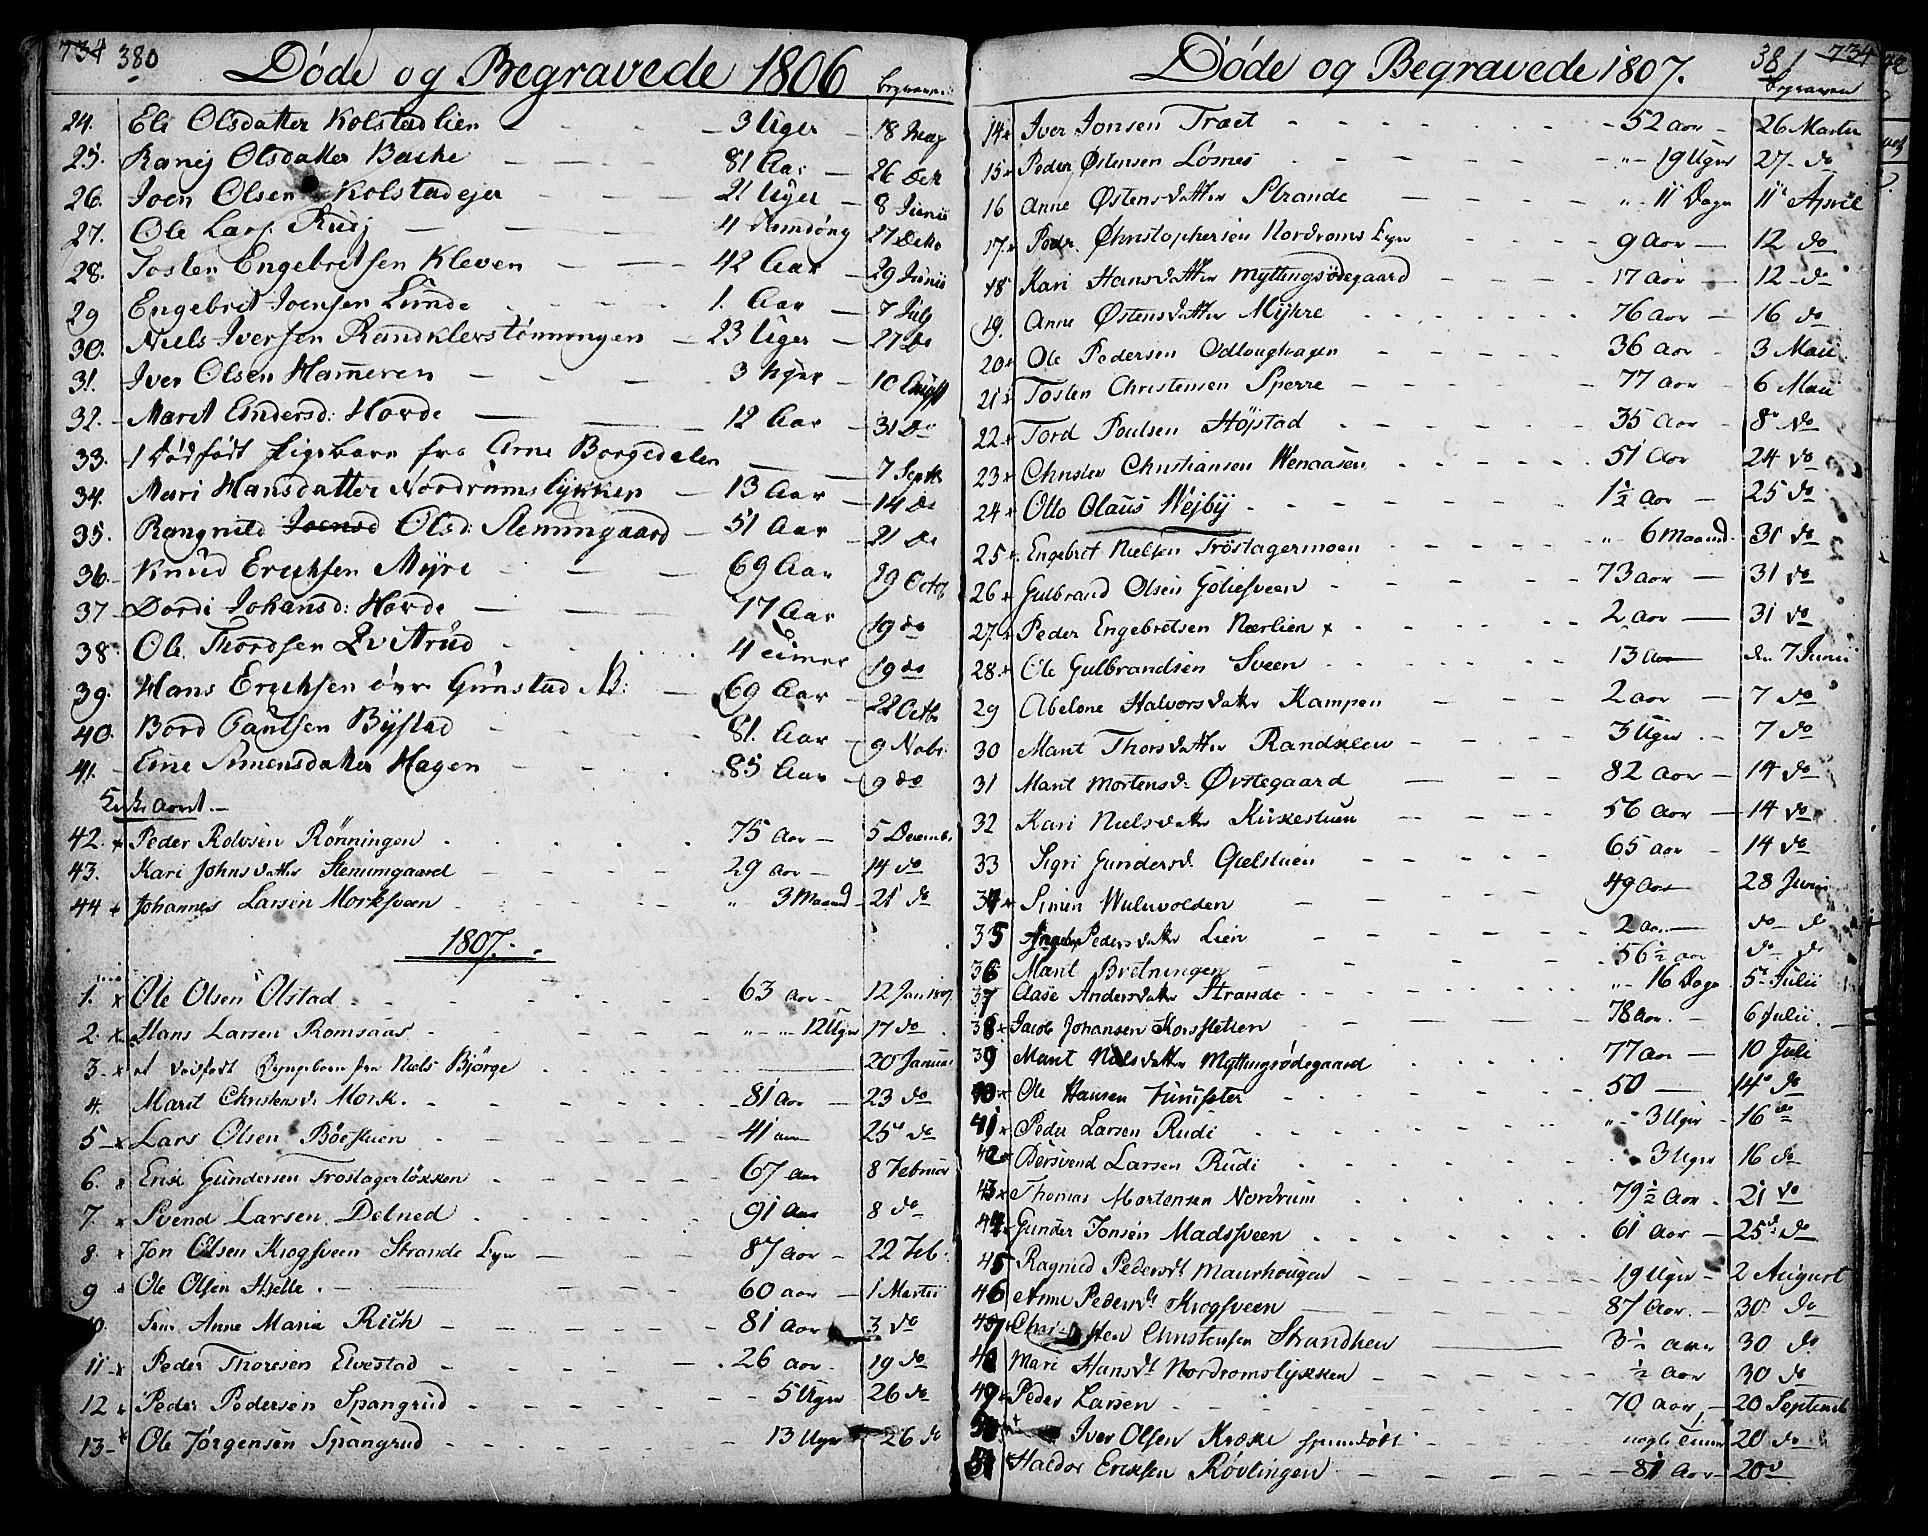 734 380
Døde og Begravede 1806
begraven
24. Eli Olsdatter Kolstadlien 3 Uger 18 May
25. Ranej Olsdatter Bache 81 Aar 26
26. Joen Olsen Kolstadejer 21 Uger 8 Junii
27. Ole Lars. Ruej 4 27
28. Tosten Engebretsen Kleven 42 Aar 29 Junii
29 Engebret Joensen Lunde 1. Aar 7 July
30. Niels Iversen 23 Uger 27 Do
31. Iver Olsen Hameren 3 Uger 10 Augst
32. Maret Endersd: Hovde 12 Aar 31 Do
33. 1 dødfødt Pigebarn fra Arne Borgedalen 7 Septbr
34. Mari Hansdatter Nordrumslykken 13 Aar 14 Do
35. Rangnild Joensd Olsd: Stenumgaard 51 Aar 21 Do
36. Knud Erichsen Myre 69 Aar 19 Octb
37 Dordi Johansd: Hovde 17 Aar 19 do
38 Ole Thordsen Qvistrud 4 Timer 19 do
39. Hans Erichsen övr. Gunstad N: 69 Aar 22 Octb
40. Bord Paulsen Bystad 81. Aar 9 Nobr.
41. Ane Simensdatter Hagen 85 Aar 9 do
Kirke Aaret.
42. x Peder Rolvsen Rönningen 75 Aar 5 Decemb.
43. Kari Johnsdatter Stenumgaard 29 Aar 14 do
44 x Johannes Larsen Morksveen " 3 Maaned 21 do
1807.
1. x Ole Olsen Olstad 63 Aar 12 Jan 1807.
2. x Hans Larsen Romsaas " " 12 Uger 17 do
3 x et dødfødt Pigebarn fra Niels Björge 20 Januar
4. Marit Christensd. Mork. 81 Aar 23 do
5 x Lars Olsen Böestuen 41 aar 25 do
6. x Erik Gundersen Trostagerlökken 67 aar 8 Februar
7 x Svend Larsen Delned 91 Aar 8 do
8. x Jon Olsen Krogsveen Strande Eyer 87 Aar 22 Feb.
9 x Ole Olsen Hielle. 60 aar 1 Martii
10. Anne Maria Rich 81 aar 3 do
11 x Peder Thoresen Elvestad 26 aar. 19 do
12 x Peder Pedersen Spangrud 5 Uger 26 do
13 x Ole Jørgensen Spangrud 13 Uger 26 do
Døde og Begravede 1807. 381 734
begraven
14 x Iver Jonsen Træet 52 Aar 26 Martii
15 x Peder Østensen Losnes " 19 Uger 27 do
16 Anne Østensdatter Strande " 11 Dage 11 April
17 x Peder Christophersen Nordrums Eyer 9 Aar 12 do
18 Kari Hansdatter Myttingsödegaard 17 aar 12 do
19. Anne Østensdatter Mykre 76 aar 16 do
20 x Ole Pedersen Odloughagen 36 aar 3 Maii
21 x Tosten Christensen Sperre 77 aar 6 Maii
22 x Tord Poulsen Höjstad 35 Aar 8 do
23 x Christen Christiansen Wenaasen 51 Aar 24 do
24 x Otto Olaus Wejby 1½ Aar 25 do
25 x Engebret Nielsen Tröstagermoen " 6 Maaned. 31 do
26 x Gulbrand Olsen Göliesveen 73 aar 31 do
27 x Peder Engebretsen Nærlien x 2 aar 31 do
28 x Ole Gulbrandsen Sveen 13 Aar 7 Junii
29 Abelone Halvorsdatter Kampen 2 aar 7 do
30 Marit Thorsdatter Randklev 3 Uger 7 do
31 Marit Mortensd. Øvstegaard 82 Aar 14 do
32 Kari Nielsdatter Kirkestuen 56 aar 14 do
33 Sigri Gundersd. Gielstuen 65 aar 14 do
34 x Simen Wuluvolden 49 Aar 28 Junii
35 Ingebr Pedersdatter Lien 2 aar do do
36 Marit Bretningen 56½ aar do do
37 Aase Andersdatter Strande " 16 Dage 5 Julii
38 x Jacob Johansen Korsstetten 78 Aar. 6 Julii
39 Marit Nielsdatter Myttingsödegaard 77 Aar 10 Juli
40 x Ole Hansen 50 14 do
41 x Peder Larsen Rudi " 3 Uger 16 do
42 x Bersvend Larsen Rudi 3 Uger 16 do
43 x Thomas Mortensen Nordrum 79½ Aar 21 do
44 x Gunder Jonsen Madssveen 61 Aar 25 do
45 Ragnild Pedersdt Maurhougen 19 Uger 2 August
46 Anne Pedersdt Krogsveen 87 Aar. 30 do
47 x Christen Christensen Strandhen 3½ aar 30 do
48 Mari Hansdt Nordromslykken ½ aar 30 do
49 x Peder Larsen 70 aar 20 Septemb
50 x Iver Olsen Kræke nogle Timer 20 do
51 Haldor Eriksen Rövlingen 81 Aar 20 do